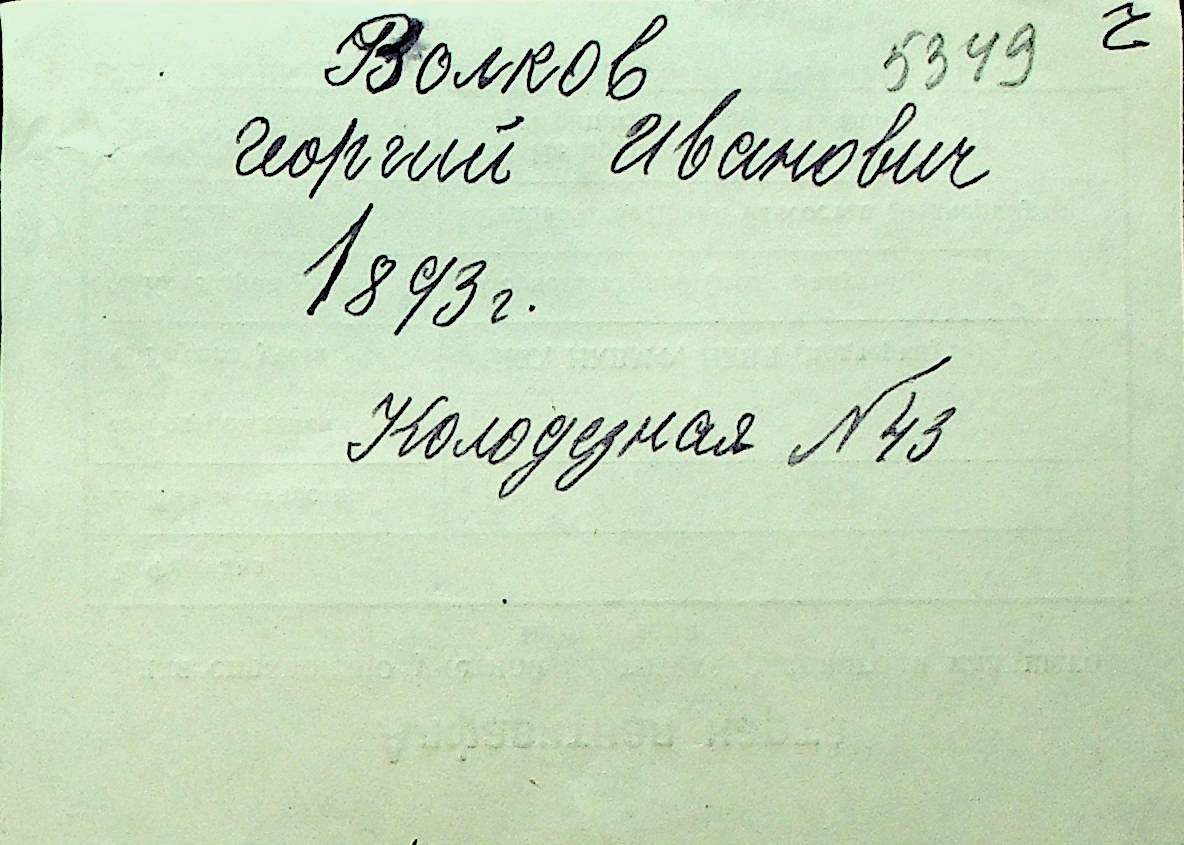 Волков 5349
Георгий Иванович
1893г.
Колодезная №43